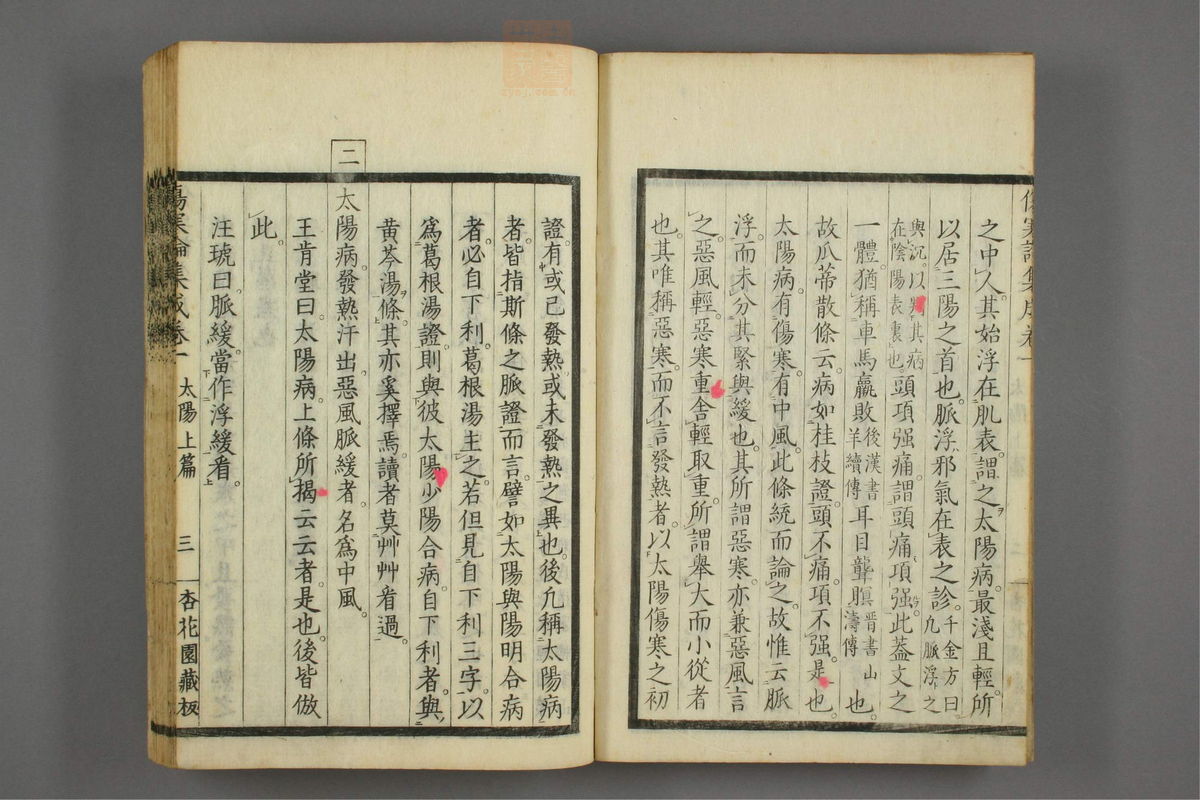 之中人其始浮在肌表謂之太陽病最淺且輕所
以居三陽之首也脈浮邪氣在表之診千金方曰凡脈浮之
與沉以判其病在陰陽表裏也頭項强痛謂頭痛項强此蓋文之
一體猶稱車馬羸敗後漢書羊續傳耳目聾瞑晋書山濤傳也
故瓜蒂散條云病如桂枝證頭不痛項不强是也
太陽病有傷寒有中風此條統而論之故惟云脈
浮而未分其緊與緩也其所謂惡寒亦兼惡風言
之惡風輕惡寒重舍輕取重所謂舉大而小從者
也其唯稱惡寒而不言發熱者以太陽傷寒之初
證有或已發熱或未發熱之異也後凡稱太陽病
者皆指斯條之脈證而言譬如太陽與陽明合病
者必自下利葛根湯主之若但見自下利三字以
爲葛根湯證則與彼太陽少陽合病自下利者與
黃芩湯條其亦奚擇焉讀者莫艸艸看過
二
太陽病發熱汗出惡風脈緩者名爲中風
王肯堂曰太陽病上條所揭云云者是也後皆倣
此
汪琥曰脈緩當作浮緩看
傷寒論集成卷一 太陽上篇 三 杏花園藏板